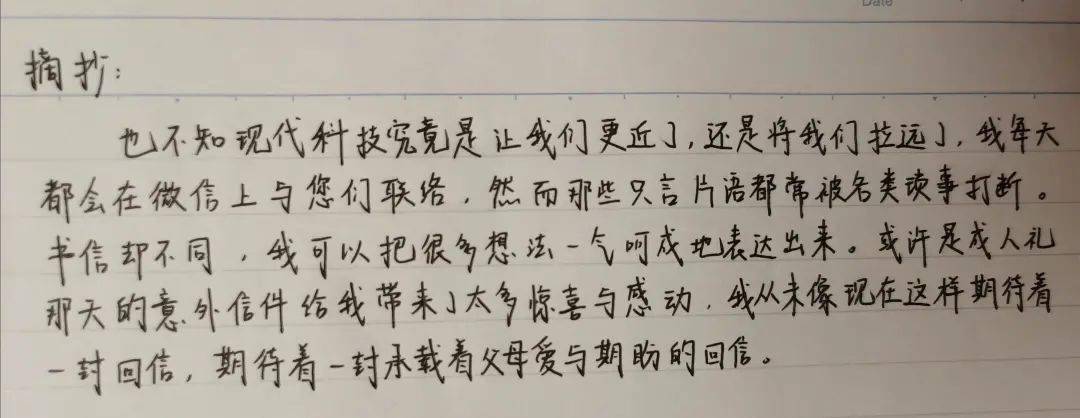 Date
摘抄：
也不知现代科技究竟是让我们更近了，还是将我们拉远了，我每天
都会在微信上与您们联络，然而那些只言片语都常被各类读事打断。
书信却不同，我可以把很多想法一气呵成地表达出来。或许是成人礼
那天的意外信件给我带来了太多惊喜与感动，我从未像现在这样期待着
一封回信，期待着一封承载着父母爱与期盼的回信。